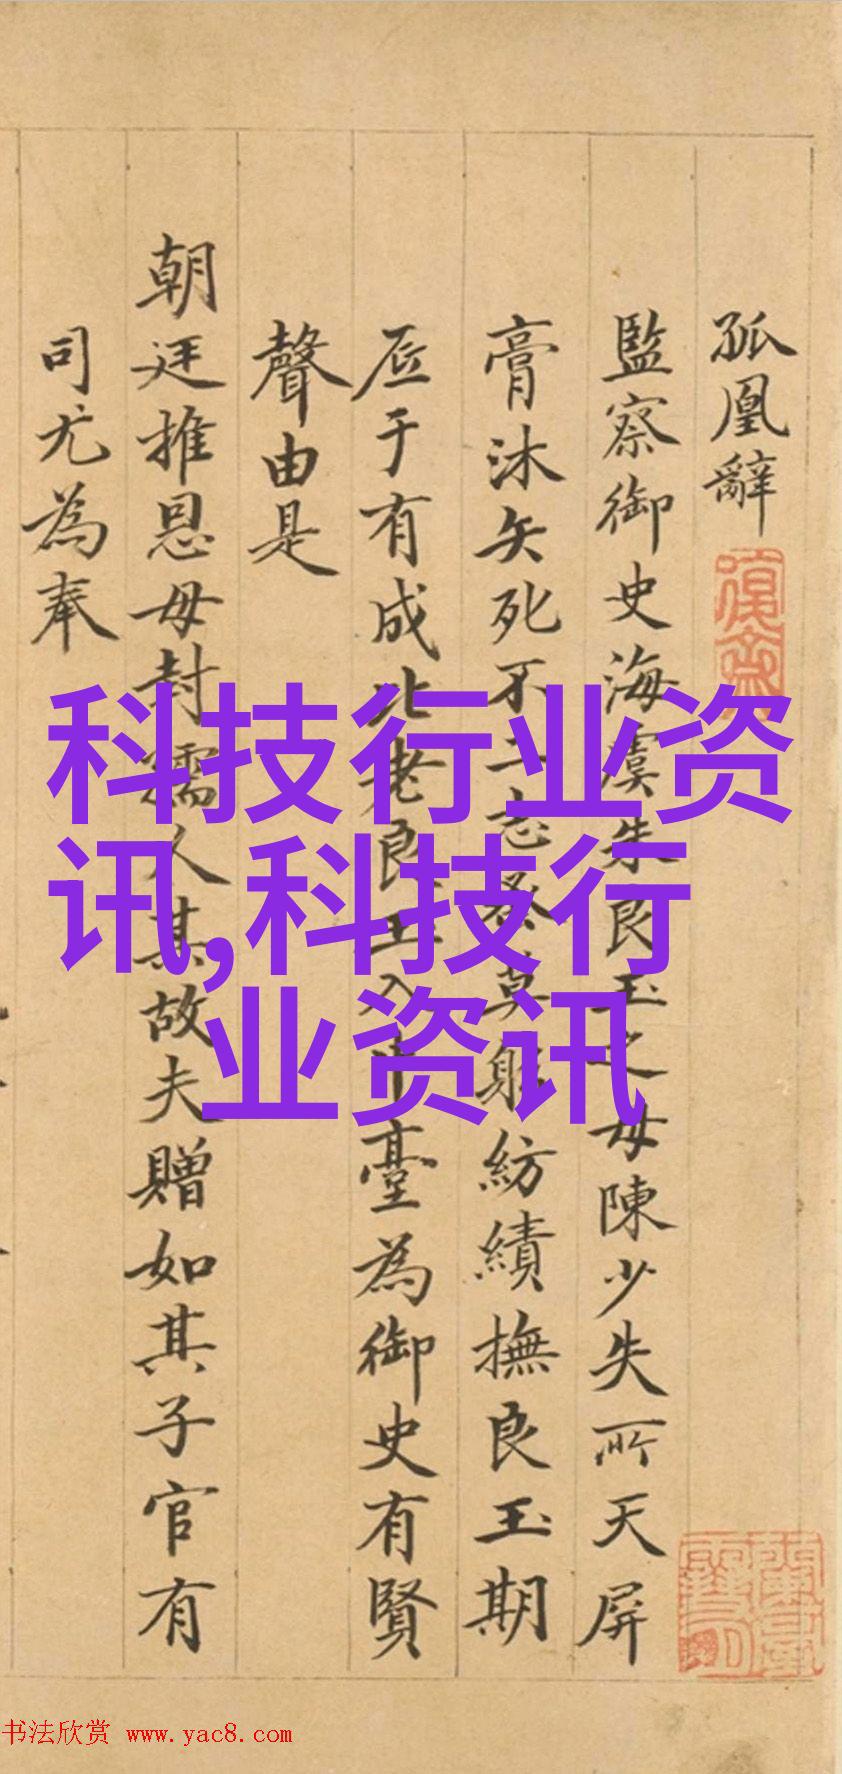 孤凰辭
監察御史海虞朱良玉之母陳少失所天屏
膏沐矢死不二志蚤莫躬紡績撫良玉期
底于有成比老良玉入中臺為御史有賢
聲由是
朝廷推恩母封孺人其故夫贈如其子官有
司尤為奉
科技行业资
讯,科技行
业资讯
书法欣赏 www.yac8.com